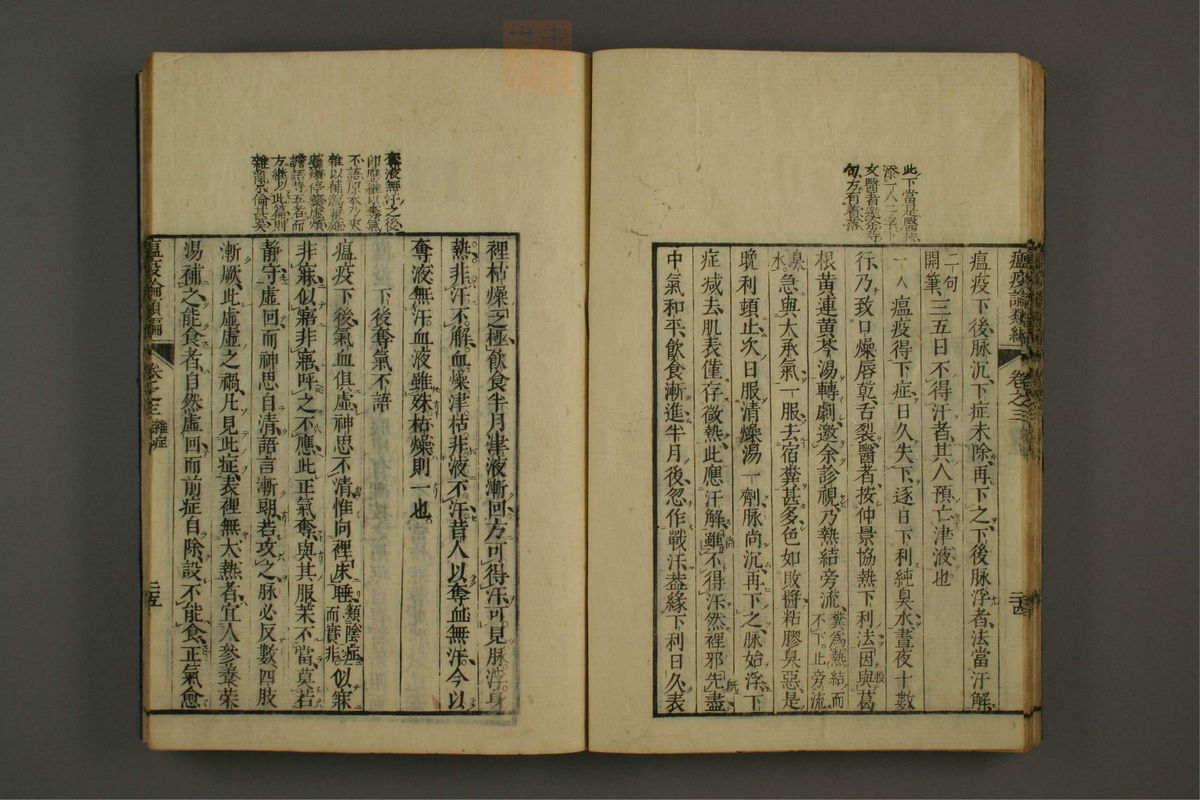 此下當是醫按
添一人二字下
文醫者與余等
句方有着落
瘟疫論類編
卷之三
二十四
瘟疫下後脉沉下症未除再下之下後脉浮者法當汗解
二句開筆三五日不得汗者其人預亡津液也
一人瘟疫得下症日久失下逐日下利純臭水晝夜十數
行乃致口燥唇乾舌裂醫者按仲景協熱下利法因與葛
根黄連黄芩湯轉劇邀余診視乃熱結旁流糞為熱結而不下止旁流
臭水急與大承氣一服去宿糞甚多色如敗醬粘膠臭惡是
晚利頓止次日服清燥湯一劑脉尚沉再下之脉始浮下
症减去肌表僅存微熱此應汗解雖不得汗然裡邪先盡
中氣和平飲食漸進半月後忽作戰汗盖緣下利日久表
裡枯燥之極飲食半月津液漸回方可得汗可見脉浮身
熱非汗不解血燥津枯非液不汗昔人以奪血無汗今以
奪液無汗血液雖殊枯燥則一也
奪液無汗之後
即應繼以奪氣
不語原本乃夾
雜以補瀉兼施
藥煩停藥虛煩
譫語等五者而
方繼以此篇則
雜亂不倫甚矣
下後奪氣不語
瘟疫下後氣血俱虛神思不清惟向裡床睡類陰症而實非似寐
非寐似寤非寤呼之不應此正氣奪與其服藥不當莫若
靜守虛回而神思自清語言漸朗若攻之脉必反數四肢
漸厥此虛虛之禍凡見此症表裡無大熱者宜人參養榮
湯補之能食者自然虛回而前症自除設不能食正氣愈
瘟疫論類編
卷之三
雜症
二十五